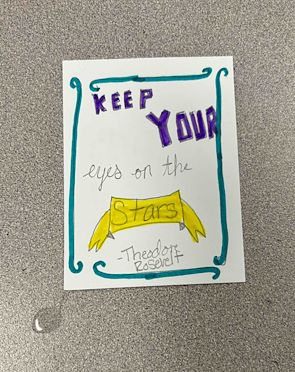 KEEP
YOUR
eyes on the
Stars
-Theodore
Rosevelt